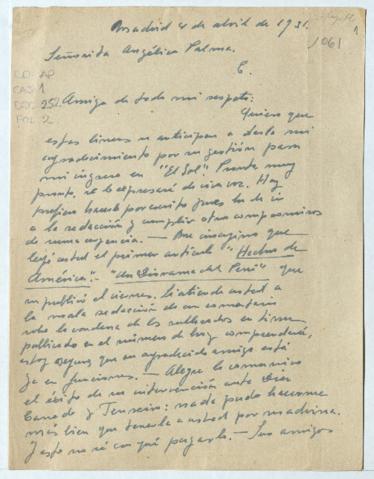 Madrid 4 de abril de 1931.
1061
Señorita Angélica Palma.
C.
CD. AP
CAJ 1
DOC 252
FOL 2
Amiga de todo mi respeto:
Quiero que
estas líneas se anticipen a darle mi
agradecimiento por su gestión para
mi ingreso en "El Sol". Pronto, muy
pronto, se lo expresaré de viva voz. Hoy
prefiero hacerlo por escrito pues he de ir
a la redacción y cumplir otros compromisos
de suma urgencia. — Me imagino que
leyó usted el primer artículo "Hechos de
América". - "Un Diorama del Perú" que
se publicó el viernes. Si añade usted a
la la redacción de un comentario
sobre la condena de los sublevados en
publicado en el número de hoy comprenderá,
estoy seguro, que su agradecido amigo está
ya en funciones. — Alegre le comunico
el éxito de su intervención ante Díez
Canedo y : nada pudo hacerme
más bien que tenerla a usted por madrina.
Y esto no sé con qué pagarlo. — Sus amigos